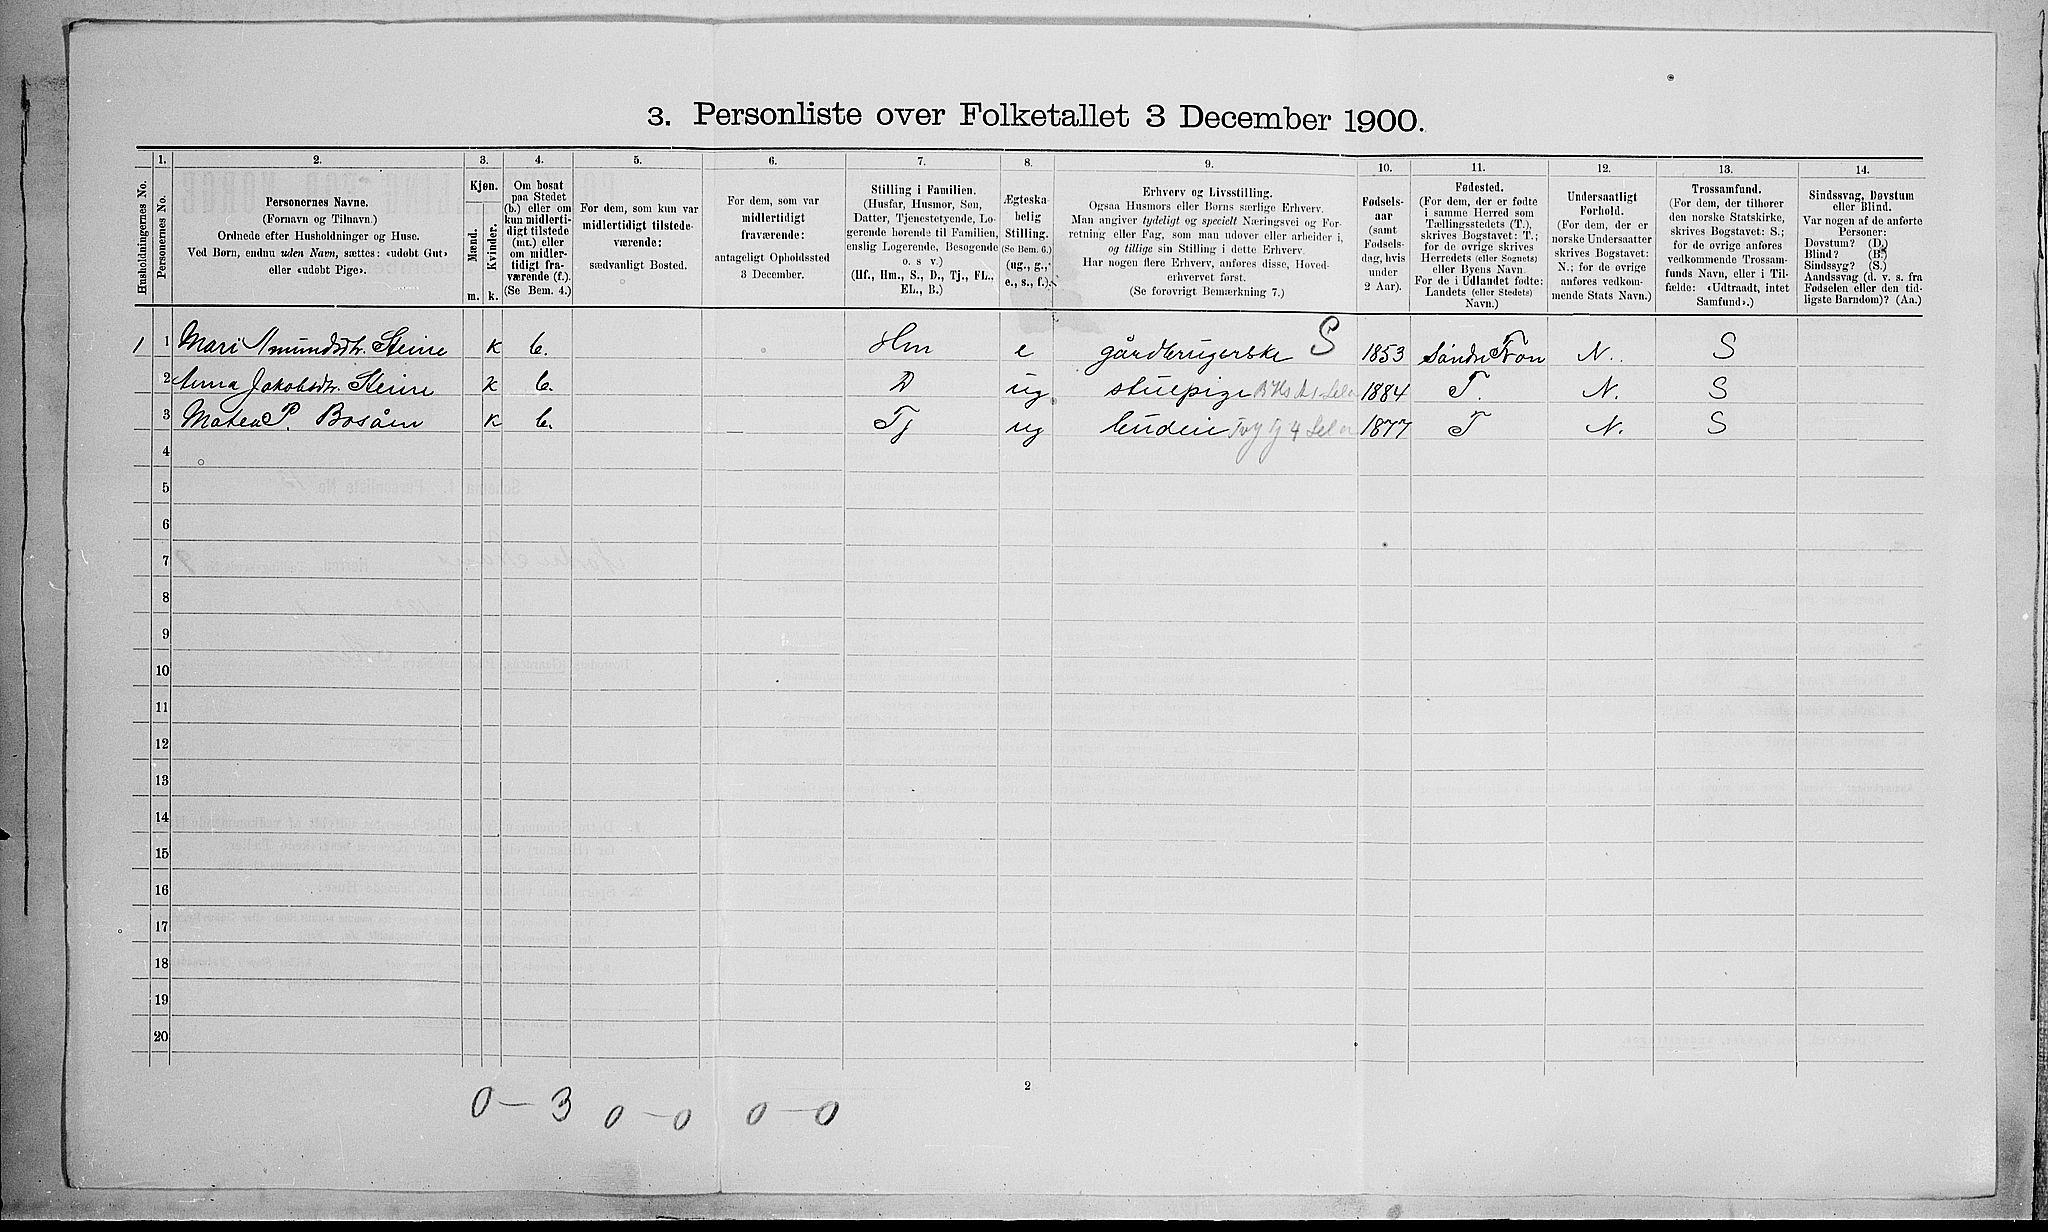 3. Personliste over Folketallet 3 December 1900.
1. 2. 3. 4. 5. 6. 7. 8. 9. 10. 11. 12. 13. 14.
Husholdningernes No.
Personernes No.
Personernes Navne.
(Fornavn og Tilnavn.)
Ordnede efter Husholdninger og Huse.
Ved Børn, endnu uden Navn, sættes: «udøbt Gut»
eller «udøbt Pige».
Kjøn.
Mænd.
Kvinder.
m. k.
Om bosat
paa Stedet
(b.) eller om
kun midlerti-
digt tilstede
(mt.) eller
om midler-
tidigt fra-
værende (f.).
(Se Bem. 4.)
For dem, som kun var
midlertidigt tilstede-
værende:
sædvanligt Bosted.
For dem, som var
midlertidigt
fraværende:
antageligt Opholdssted
3 December.
Stilling i Familien.
(Husfar, Husmor, Søn,
Datter, Tjenestetyende, Lo-
gerende hørende til Familien,
enslig Logerende, Besøgende
o. s v.)
(Hf., Hm., S., D., Tj., FL.,
EL., B.)
Ægteska-
belig
Stilling.
(Se Bem. 6.)
(ug., g.,
e., s., f.).
Erhverv og Livsstilling.
Ogsaa Husmors eller Børns særlige Erhverv.
Man angiver tydeligt og specielt Næringsvei og For-
retning eller Fag, som man udøver eller arbeider i,
og tillige sin Stilling i dette Erhverv.
Har nogen flere Erhverv, anføres disse, Hoved-
erhvervet først.
(Se forøvrigt Bemærkning 7.)
Fødsels-
aar
(samt
Fødsels-
dag, hvis
under
2 Aar).
Fødested.
(For dem, der er fødte
i samme Herred som
Tællingsstedets (T.),
skrives Bogstavet: T.;
for de øvrige skrives
Herredets (eller Sognets)
eller Byens Navn.
For de i Udlandet fødte:
Landets (eller Stedets)
Navn.)
Undersaatligt
Forhold.
(For dem, der er
norske Undersaatter
skrives Bogstavet:
N.; for de øvrige
anføres vedkom-
mende Stats Navn.)
Trossamfund.
(For dem, der tilhører
den norske Statskirke,
skrives Bogstavet: S.;
for de øvrige anføres
vedkommende Trossam-
funds Navn, eller i Til-
fælde: «Udtraadt, intet
Samfund».)
Sindssvag, Døvstum
eller Blind.
Var nogen af de anførte
Personer:
Døvstum? (D.)
Blind? (B.)
Sindssyg? (S.)
Aandssvag (d. v. s. fra
Fødselen eller den tid-
ligste Barndom)? (Aa.)
1 1 Mari Amundsdtr. Steine k b. Hm e gårdbrugerske S 1853 Søndre Fron N. S
2 Anna Jakobsdtr. Steine k b. D ug stuepige 1884 T. N. S
3 Matea P. Bosåen k b. Tj ug budeie 1877 T N. S
4
5
6
7
8
9
10
11
12
13
14
15
16
17
18
19
20
2
0 – 3 0 – 0 0 – 0